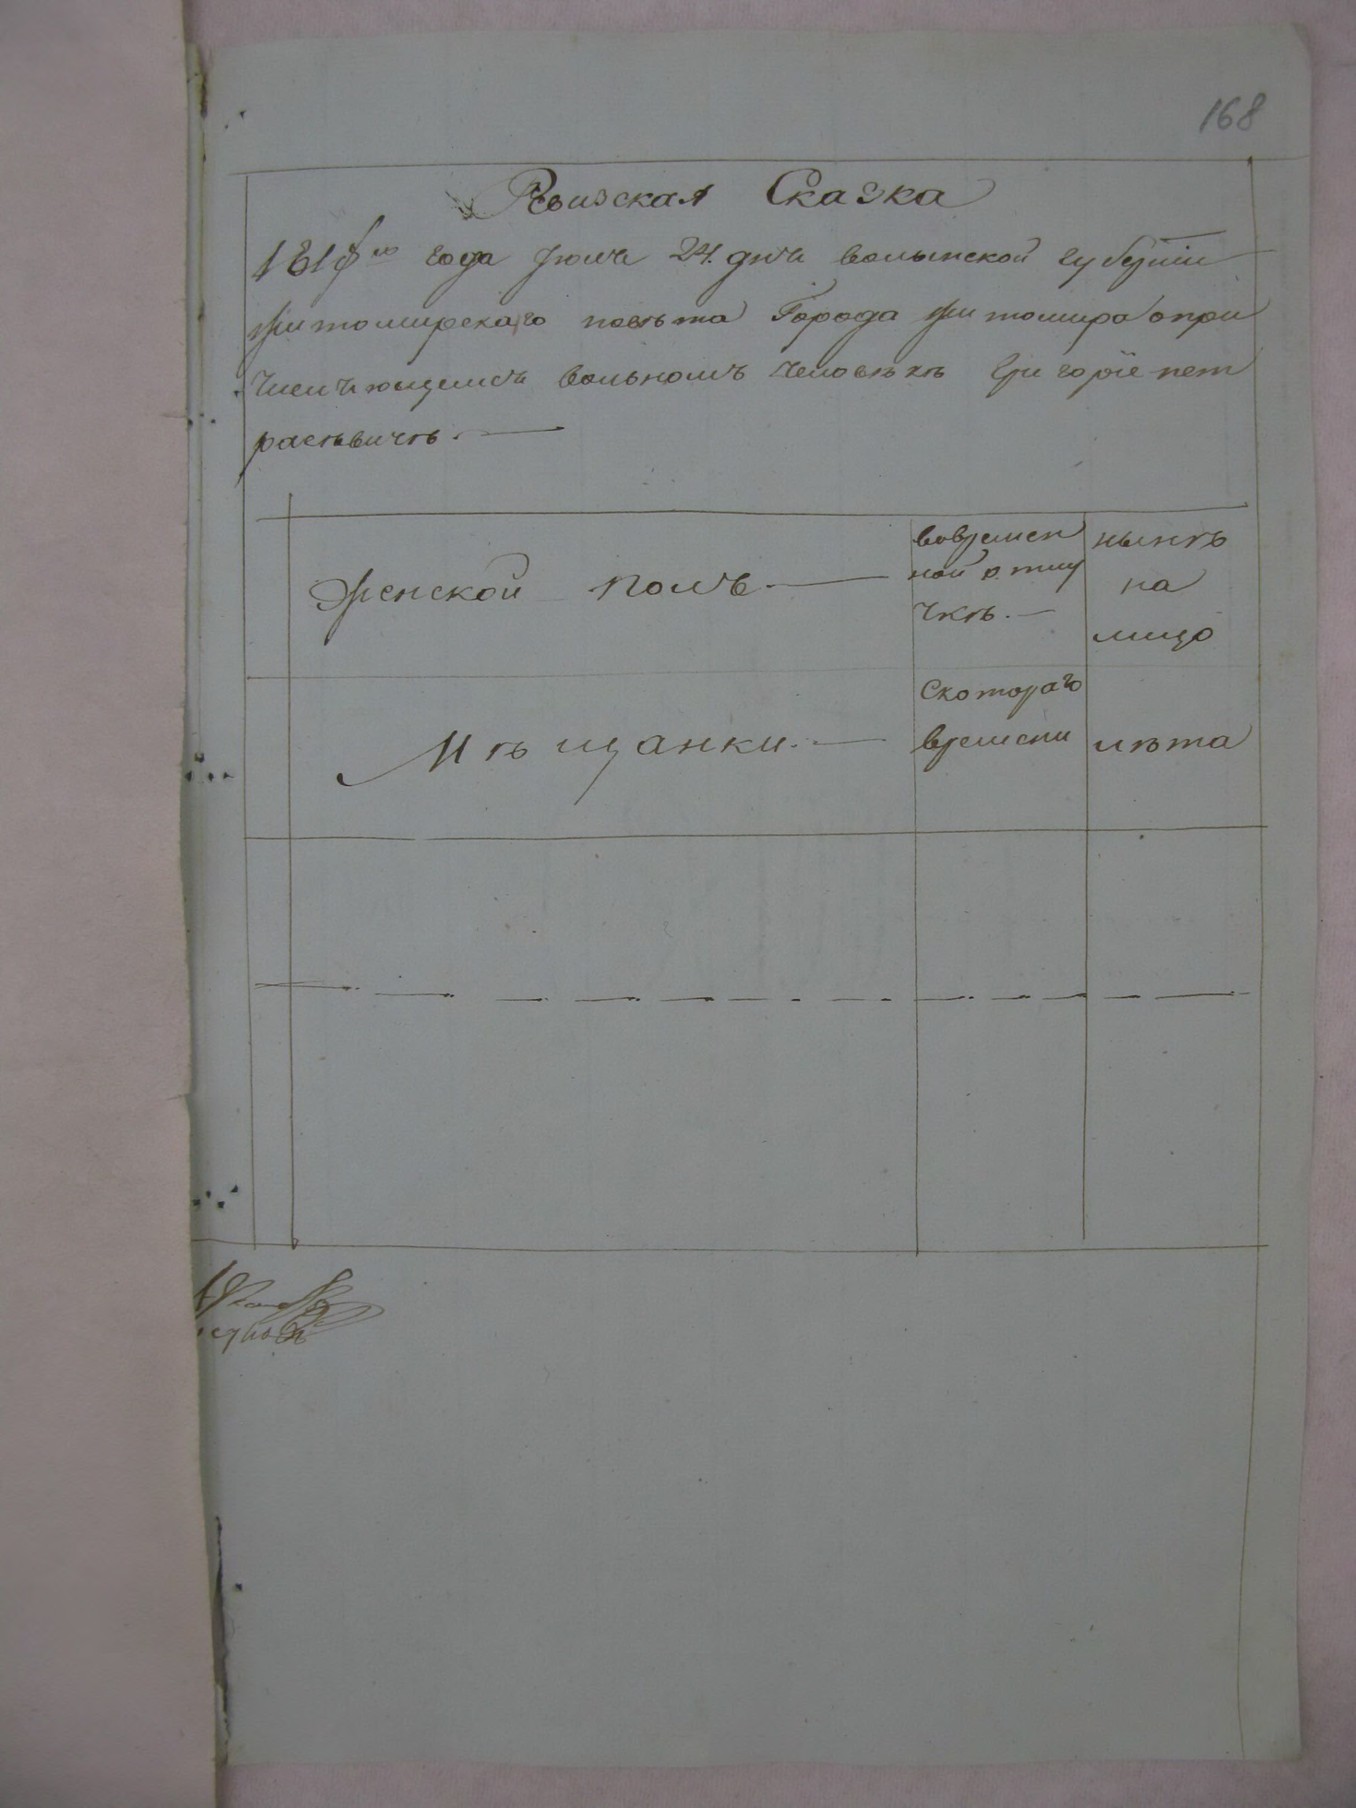 168
Ревизская Сказка
181 года Июля 24. дня волынской губернии
житомирскаго повѣта Города житомира опри
числяющемся вольномъ человѣкѣ Григорiе пет
расѣвичѣ.
Женской полъ
вовремен
ной отлу
чкѣ.
нынѣ
на
лицо
Мѣщанки.
Скотораго
времени
лѣта